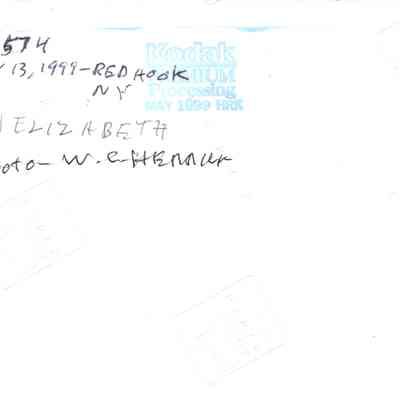 574
13, 1999-RED HOOK
NY
ELIZABETH
oto-W.
Kodak
Processing
MAY 1999 HRK